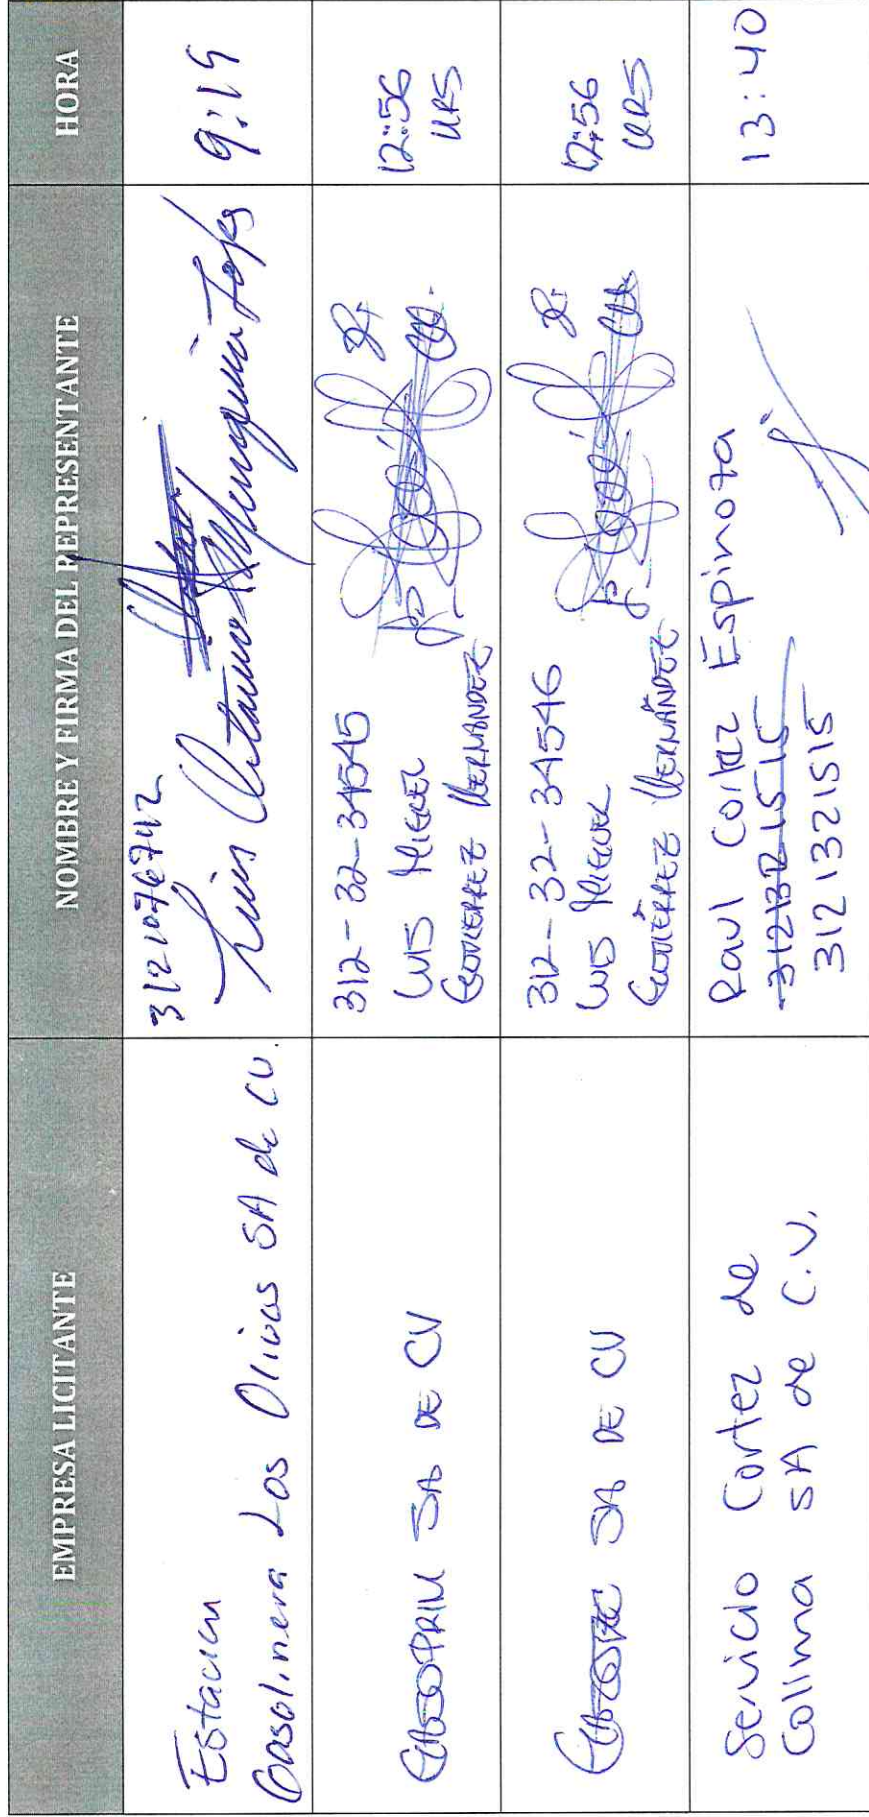 EMPRESA LICITANTE
NOMBRE Y FIRMA DEL REPRESENTANTE
HORA
Estación
Gasolinera Los Olivos SA de CV.
3121076742
Luis Octavio
9:19
GASOPRIM SA DE CV
312-32-34545
LUIS MIGUEL
GUTIERREZ HERNANDEZ
12:56
HRS
SA DE CV
312-32-34546
LUIS MIGUEL
GUTIÉRREZ HERNÁNDEZ
12:56
HRS
Servicio Cortez de
Colima SA de C.V.
Raul Cortez Espinoza
3121321515
3121321515
13:40